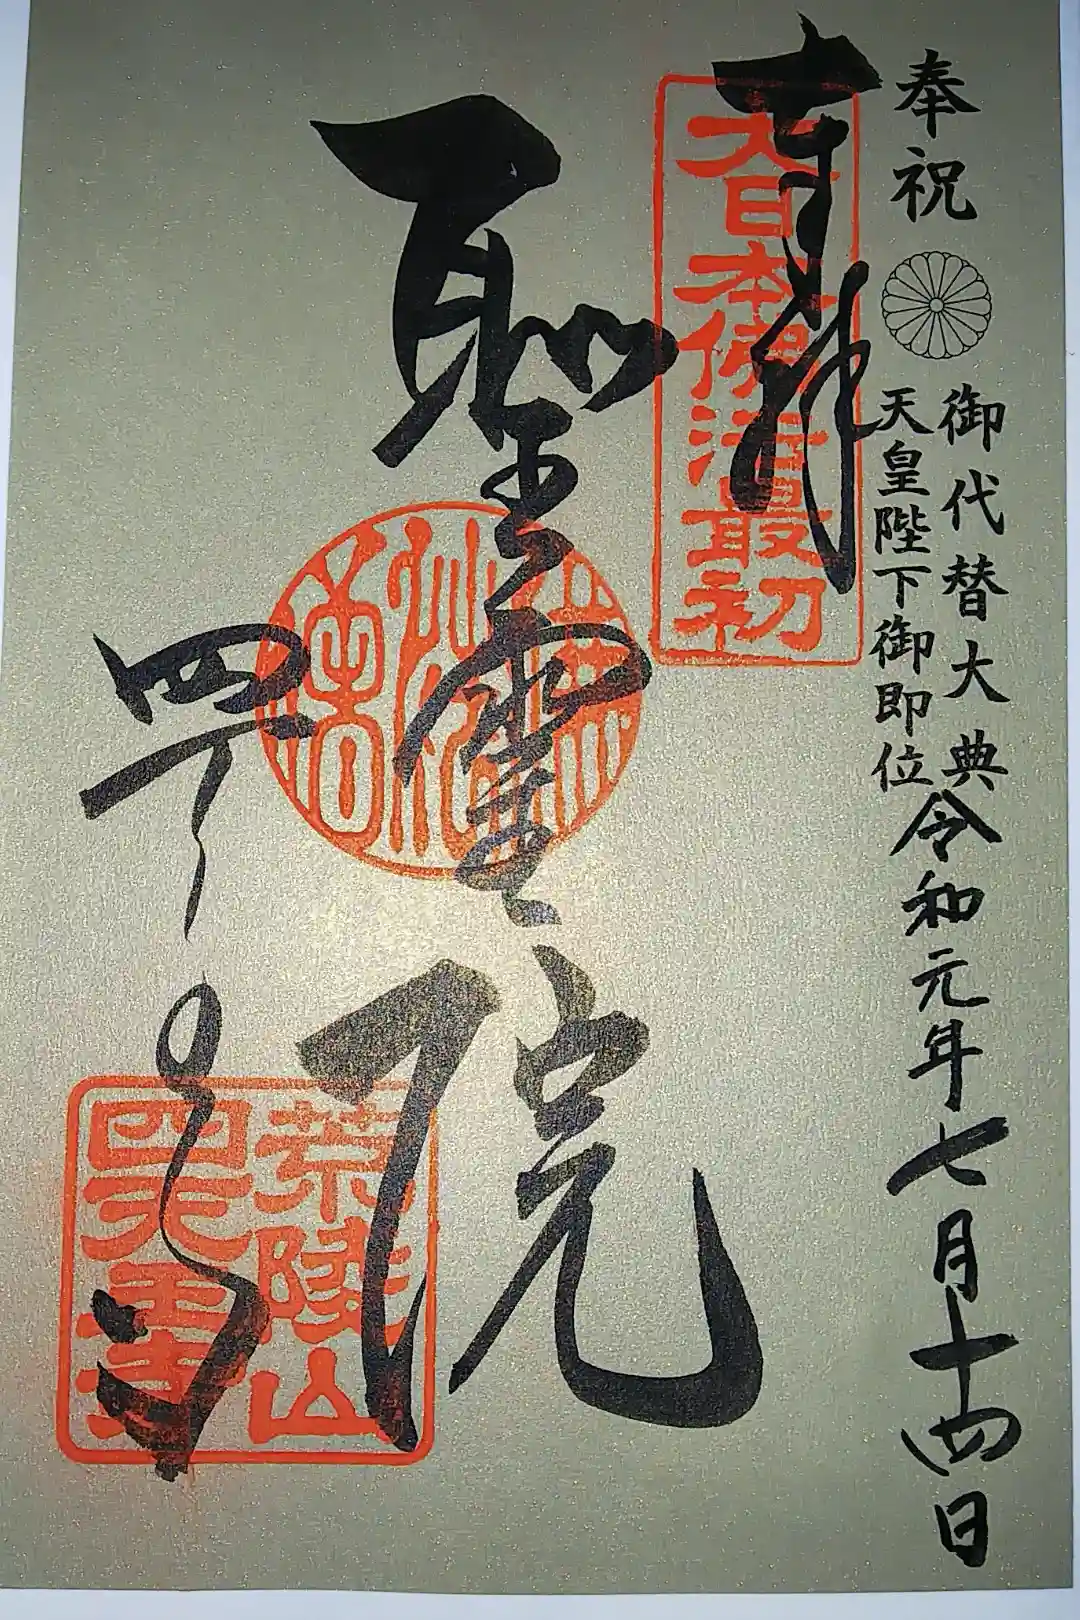 奉祝
御代替大典
天皇陛下御即位
令和元年七月十四日
奉拝
大日本佛法最初
聖霊院
四天王寺
荒陵山
四天王寺